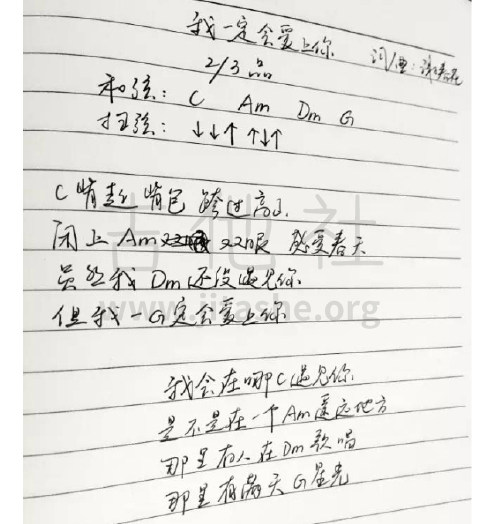 我一定会爱上你
词/曲:
2/3品
和弦: C Am Dm G
扫弦: ↓↓↑ ↑↓↑
C 背起背包 跨过高山
闭上 Am 双眼 感受春天
虽然我 Dm 还没遇见你
但我一 G 定会爱上你
我会在哪 C 遇见你
是不是在一个 Am 遥远地方
那里有人在 Dm 歌唱
那里有满天 G 星光
吉他社
www.jitashe.org